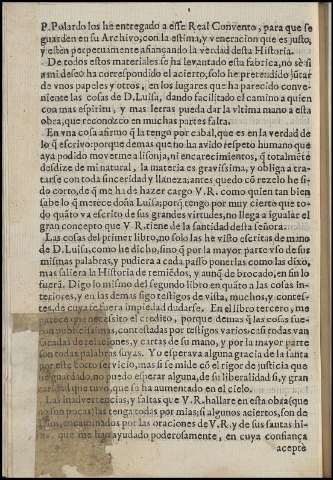 P. Polardo los he entregado a esse Real Convento, para que se
guarden en su Archivo, con la estima, y veneracion que es justo,
y estèn perpetuamente afiançando la verdad desta Historia.
De todos estos materiales se ha levantado esta fabrica, no sè si
a mi deseo ha correspondido el acierto, solo he pretendido jũtar
de vnos papeles y otros, en los lugares que ha parecido conve-
niente las cosas de D. Luisa, dando facilitado el camino a quien
con mas espiritu, y mas letras pueda dar la vltima mano a esta
obra, que reconozco en muchas partes falta.
En vna cosa afirmo q̃ la tengo por cabal, que es en la verdad de
lo q̃ escrivo: porque demas que no ha avido respeto humano que
aya podido moverme a lisonja, ni encarecimientos, q̃ totalmẽte
desdize de mi natural, la materia es gravissima, y obliga a tra-
tarse con toda sinceridad y llaneza; antes quedo cõ rezelo he si-
do corto, de q̃ me ha de hazer cargo V.R. como quien tan bien
sabe lo q̃ merece doña Luisa; porq̃ tengo por muy cierto que to-
do quãto va escrito de sus grandes virtudes, no llega a igualar el
gran concepto que V.R. tiene de la santidad desta señora.
Las cosas del primer libro, no solo las he visto escritas de mano
de D. Luisa, como he dicho, sino q̃ por la mayor parte vso de sus
mismas palabras, y pudiera a cada passo ponerlas como las dixo,
mas saliera la Historia de remiẽdos, y aunq̃ de brocado, en fin lo
fuerã. Digo lo mismo del segundo libro en quãto a las cosas in-
teriores, y en las demas sigo testigos de vista, muchos, y contes-
tes, de cuya fe fuera impiedad dudarse. En el libro tercero, me
parece que necessito el credito, porque demas q̃ las cosas fue-
ron publicissimas, contestadas por testigos varios: casi todas van
sacadas de relaciones, y cartas de su mano, y por la mayor parte
son todas palabras suyas. Yo esperava alguna gracia de la santa
por este corto servicio, mas si se mide cõ el rigor de justicia que
guardado, no puedo esperar alguna, de su liberalidad si, y gran
caridad que tuvo, que se ha aumentado en el cielo.
Las inadvertencias, y faltas que V.R. hallare en esta obra (que
no son pocas) las tenga todas por mias; si algunos aciertos, son de
Dios, encaminados por las oraciones de V.R. y de sus santas hi-
jas, que me han ayudado poderosamente, en cuya confiança
acepte